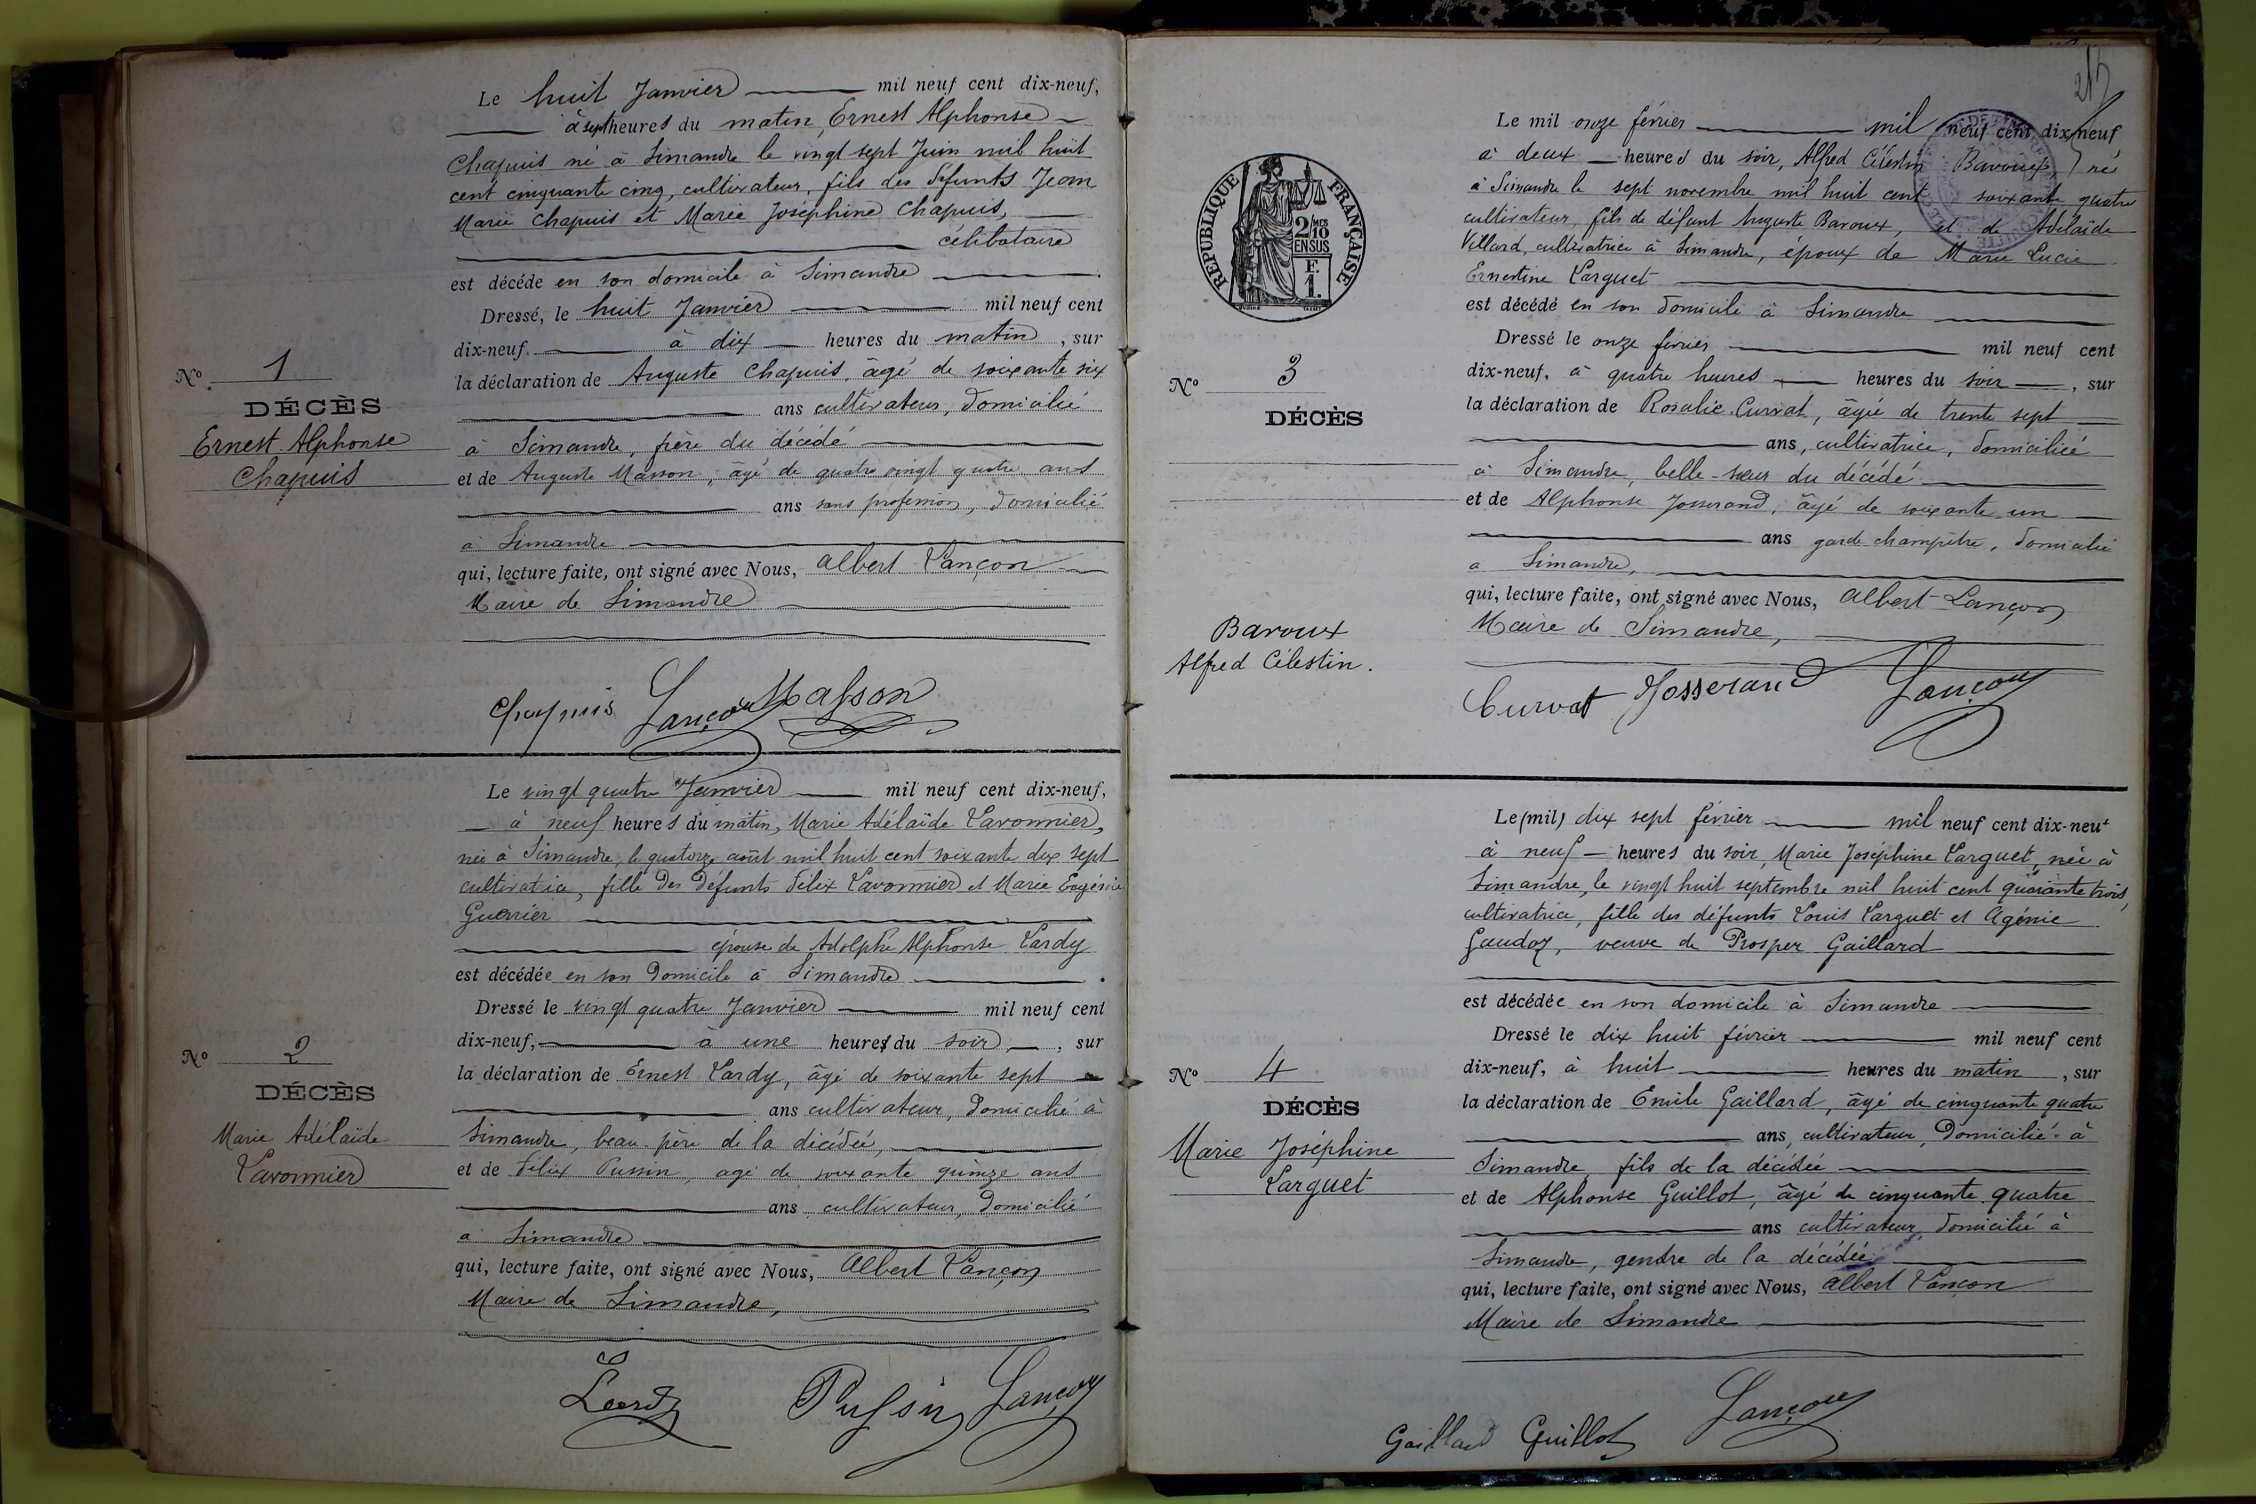 Le huit Janvier mil neuf cent dix-neuf,
à sept heures du matin, Ernest Alphonse
Chapuis né à Simandre le vingt sept Juin mil huit
cent cinquante cinq, cultivateur, fils des défunts Jean
Marie Chapuis et Marie Joséphine Chapuis,
célibataire
est décédé en son domicile à Simandre
Dressé, le huit Janvier mil neuf cent
dix-neuf. à dix heures du matin, sur
la déclaration de Auguste Chapuis, âgé de soixante six
ans cultivateur, domicilié
à Simandre, frère du décédé
et de Auguste Masson, âgé de quatre vingt quatre ans
ans sans profession, domicilié
à Simandre
qui, lecture faite, ont signé avec Nous, Albert Lançon
Maire de Simandre
Nº 1
DÉCÈS
Ernest Alphonse
Chapuis
Chapuis Lançon Masson
Le vingt quatre Janvier mil neuf cent dix-neuf,
à neuf heures du matin, Marie Adélaïde Vavonnier,
née à Simandre, le quatorze août mil huit cent soixante dix sept
cultivatrice, fille des défunts Félix Vavonnier et Marie Eugénie
Guerrier
épouse de Adolphe Alphonse Lardy
est décédée en son domicile à Simandre
Dressé le vingt quatre Janvier mil neuf cent
dix-neuf, à une heures du soir, sur
la déclaration de Ernest Lardy, âgé de soixante sept
ans cultivateur, domicilié à
Simandre, beau-père de la décédée,
et de Félix Pussin, agé de soixante quinze ans
ans cultivateur, domicilié
à Simandre
qui, lecture faite, ont signé avec Nous, Albert Lançon
Maire de Simandre,
Nº 2
DÉCÈS
Marie Adélaïde
Vavonnier
Lardy Pussin Lançon
Le mil onze février mil neuf cent dix neuf,
à deux heures du soir, Alfred Célestin Baroux, né
à Simandre le sept novembre mil huit cent soixante quatre
cultivateur, fils de défunt Auguste Baroux, et de Adélaïde
Villard, cultivatrice à Simandre, époux de Marie Lucie
Ernestine Larguet
est décédé en son domicile à Simandre
Dressé le onze février mil neuf cent
dix-neuf, à quatre heures heures du soir, sur
la déclaration de Rosalie Curvat, âgée de trente sept
ans, cultivatrice, domiciliée
à Simandre, belle-sœur du décédé
et de Alphonse Josserand, âgé de soixante un
ans garde champêtre, domicilié
a Simandre,
qui, lecture faite, ont signé avec Nous, Albert Lançon
Maire de Simandre,
RÉPUBLIQUE FRANÇAISE
2/10 MES
EN SUS
F.
1.
Nº 3
DÉCÈS
Baroux
Alfred Célestin.
Curvat Josserand Lançon
Le (mil) dix sept février mil neuf cent dix-neuf
à neuf heures du soir, Marie Joséphine Larguet, née à
Simandre, le vingt huit septembre mil huit cent quarante trois,
cultivatrice, fille des défunts Louis Larguet et Agénie
Gaudoz, veuve de Prosper Gaillard
est décédée en son domicile à Simandre
Dressé le dix huit février mil neuf cent
dix-neuf, à huit heures du matin, sur
la déclaration de Emile Gaillard, âgé de cinquante quatre
ans, cultivateur, domicilié à
Simandre, fils de la décédée
et de Alphonse Guillot, âgé de cinquante quatre
ans cultivateur, domicilié à
Simandre, gendre de la décédée
qui, lecture faite, ont signé avec Nous, Albert Lançon
Maire de Simandre
Nº 4
DÉCÈS
Marie Joséphine
Larguet
Gaillard Guillot Lançon